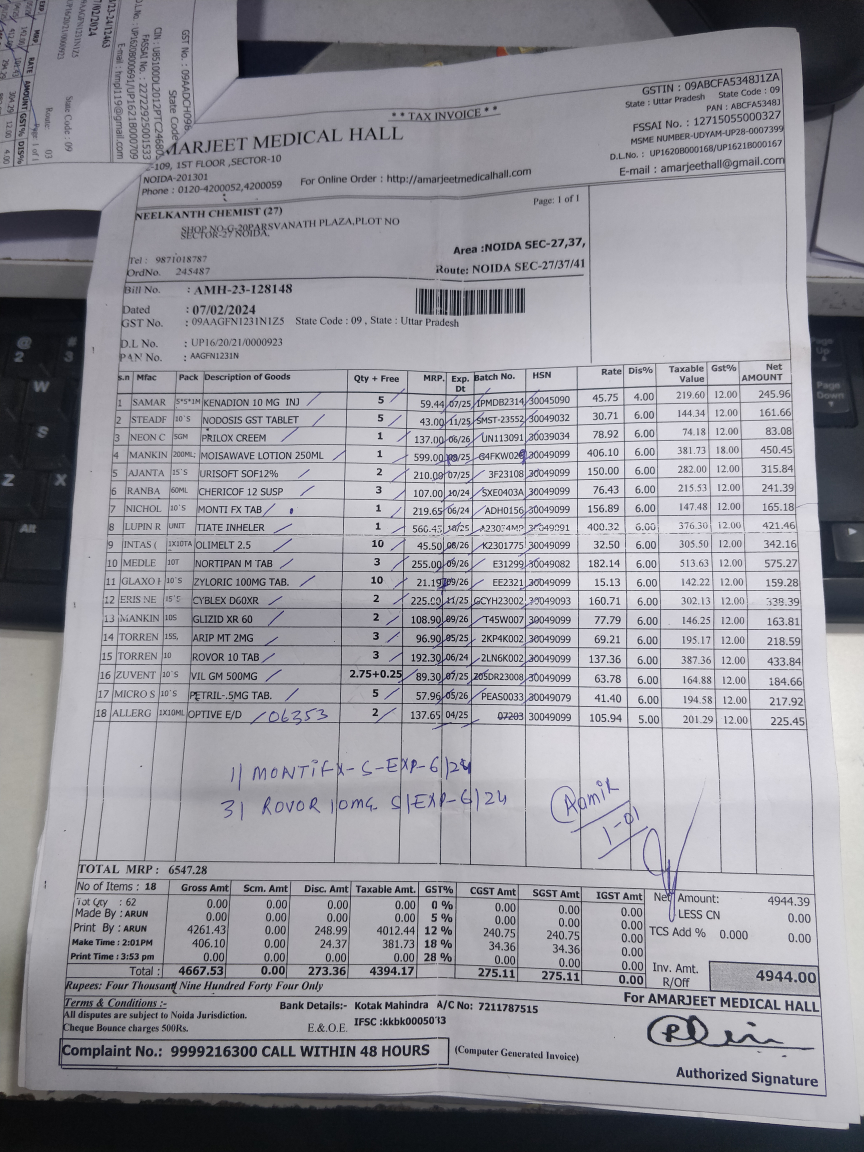 ** TAX INVOICE **
GSTIN : 09ABCFA5348J1ZA
State : Uttar Pradesh State Code : 09
PAN : ABCFA5348J
FSSAI No. : 12715055000327
MSME NUMBER-UDYAM-UP28-0007399
D.L.No. : UP1620B000168/UP1621B000167
E-mail : amarjeethall@gmail.com
MARJEET MEDICAL HALL
-109, 1ST FLOOR ,SECTOR-10
NOIDA-201301
Phone : 0120-4200052,4200059
For Online Order : http://amarjeetmedicalhall.com
Page: 1 of 1
NEELKANTH CHEMIST (27)
SHOP NO-G-20PARSVANATH PLAZA,PLOT NO
SECTOR-27 NOIDA,
Tel : 9871018787
OrdNo. 245487
Area :NOIDA SEC-27,37,
Route: NOIDA SEC-27/37/41
Bill No. : AMH-23-128148
Dated : 07/02/2024
GST No. : 09AAGFN1231N1Z5 State Code : 09 , State : Uttar Pradesh
D.L No. : UP16/20/21/0000923
PAN No. : AAGFN1231N
s.n Mfac Pack Description of Goods Qty + Free MRP. Exp. Dt Batch No. HSN Rate Dis% Taxable Value Gst% Net AMOUNT
1 SAMAR 5*5*1M KENADION 10 MG INJ 5 59.44 07/25 1PMDB2314 30045090 45.75 4.00 219.60 12.00 245.96
2 STEADF 10`S NODOSIS GST TABLET 5 43.00 11/25 SMST-23552 30049032 30.71 6.00 144.34 12.00 161.66
3 NEON C 5GM PRILOX CREEM 1 137.00 06/26 UN113091 30039034 78.92 6.00 74.18 12.00 83.08
4 MANKIN 200ML MOISAWAVE LOTION 250ML 1 599.00 30049099 406.10 6.00 381.73 18.00 450.45
5 AJANTA 15`S URISOFT SOF12% 2 210.00 07/25 3F23108 30049099 150.00 6.00 282.00 12.00 315.84
6 RANBA 60ML CHERICOF 12 SUSP 3 107.00 10/24 SXE0403A 30049099 76.43 6.00 215.53 12.00 241.39
7 NICHOL 10`S MONTI FX TAB 1 219.65 06/24 ADH0156 30049099 156.89 6.00 147.48 12.00 165.18
8 LUPIN R UNIT TIATE INHELER 1 400.32 6.00 376.30 12.00 421.46
9 INTAS ( 1X10TA OLIMELT 2.5 10 45.50 08/26 K2301775 30049099 32.50 6.00 305.50 12.00 342.16
10 MEDLE 10T NORTIPAN M TAB 3 255.00 09/26 E31299 30049082 182.14 6.00 513.63 12.00 575.27
11 GLAXO 10`S ZYLORIC 100MG TAB. 10 21.19 09/26 EE2321 30049099 15.13 6.00 142.22 12.00 159.28
12 ERIS NE 15`S CYBLEX D60XR 2 225.00 11/25 GCYH23002 30049093 160.71 6.00 302.13 12.00 338.39
13 MANKIN 10S GLIZID XR 60 2 108.90 09/26 T45W007 30049099 77.79 6.00 146.25 12.00 163.81
14 TORREN 15S, ARIP MT 2MG 3 96.90 05/25 2KP4K002 30049099 69.21 6.00 195.17 12.00 218.59
15 TORREN 10 ROVOR 10 TAB 3 192.30 06/24 2LN6K002 30049099 137.36 6.00 387.36 12.00 433.84
16 ZUVENT 10`S VIL GM 500MG 2.75+0.25 89.30 07/25 Z05DR23008 30049099 63.78 6.00 164.88 12.00 184.66
17 MICRO S 10`S PETRIL-.5MG TAB. 5 57.96 05/26 PEAS0033 30049079 41.40 6.00 194.58 12.00 217.92
18 ALLERG 1X10ML OPTIVE E/D 06353 2 137.65 04/25 07203 30049099 105.94 5.00 201.29 12.00 225.45
1) MONTIFX-S-EXP-6/24
3) ROVOR 10mg S/EXP-6/24
Aamir
1-01
TOTAL MRP : 6547.28
No of Items : 18 Gross Amt Scm. Amt Disc. Amt Taxable Amt. GST% CGST Amt SGST Amt IGST Amt
Tot Qty : 62 0.00 0.00 0.00 0.00 0 % 0.00 0.00 0.00
Made By : ARUN 0.00 0.00 0.00 0.00 5 % 0.00 0.00 0.00
Print By : ARUN 4261.43 0.00 248.99 4012.44 12 % 240.75 240.75 0.00
Make Time : 2:01PM 406.10 0.00 24.37 381.73 18 % 34.36 34.36 0.00
Print Time : 3:53 pm 0.00 0.00 0.00 0.00 28 % 0.00 0.00 0.00
Total : 4667.53 0.00 273.36 4394.17 275.11 275.11 0.00
Net Amount: 4944.39
LESS CN 0.00
TCS Add % 0.000 0.00
Inv. Amt. R/Off 4944.00
Rupees: Four Thousand Nine Hundred Forty Four Only
Terms & Conditions :-
All disputes are subject to Noida Jurisdiction.
Cheque Bounce charges 500Rs.
E.&.O.E.
Bank Details:- Kotak Mahindra A/C No: 7211787515
IFSC :kkbk0005013
For AMARJEET MEDICAL HALL
Complaint No.: 9999216300 CALL WITHIN 48 HOURS
(Computer Generated Invoice)
Authorized Signature